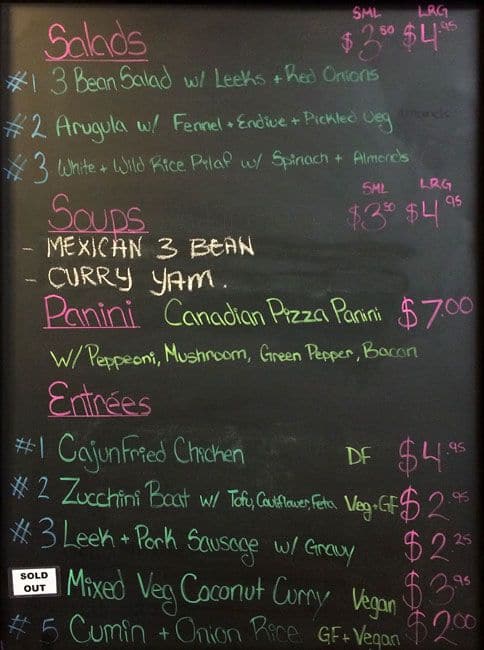 SML LRG
Salads $3.50 $4.95
#1 3 Bean Salad w/ Leeks + Red Onions
#2 Arugula w/ Fennel + Endive + Pickled Veg
#3 White + Wild Rice Pilaf w/ Spinach + Almonds
SML LRG
Soups $3.50 $4.95
- MEXICAN 3 BEAN
- CURRY YAM.
Panini Canadian Pizza Panini $7.00
w/ Pepperoni, Mushroom, Green Pepper, Bacon
Entrées
#1 Cajun Fried Chicken DF $4.95
#2 Zucchini Boat w/ Tofu, Cauliflower, Feta Veg+GF $2.95
#3 Leek + Pork Sausage w/ Gravy $2.25
SOLD OUT Mixed Veg Coconut Curry Vegan $3.95
#5 Cumin + Onion Rice GF + Vegan $2.00